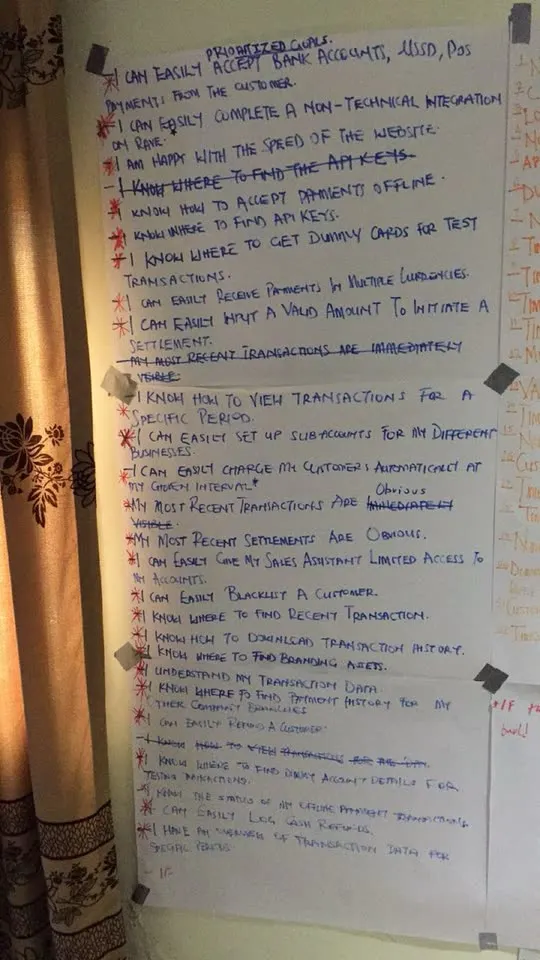 PRIORITIZED GOALS.
* I CAN EASILY ACCEPT BANK ACCOUNTS, USSD, POS
PAYMENTS FROM THE CUSTOMER.
* I CAN EASILY COMPLETE A NON-TECHNICAL INTEGRATION
ON RAVE.
* I AM HAPPY WITH THE SPEED OF THE WEBSITE.
- I KNOW WHERE TO FIND THE API KEYS.
* I KNOW HOW TO ACCEPT PAYMENTS OFFLINE.
* I KNOW WHERE TO FIND API KEYS.
* I KNOW WHERE TO GET DUMMY CARDS FOR TEST
TRANSACTIONS.
* I CAN EASILY RECEIVE PAYMENTS IN MULTIPLE CURRENCIES.
* I CAN EASILY INPUT A VALID AMOUNT TO INITIATE A
SETTLEMENT.
- MY MOST RECENT TRANSACTIONS ARE IMMEDIATELY
VISIBLE.
* I KNOW HOW TO VIEW TRANSACTIONS FOR A
SPECIFIC PERIOD.
* I CAN EASILY SET UP SUBACCOUNTS FOR MY DIFFERENT
BUSINESSES.
* I CAN EASILY CHARGE MY CUSTOMERS AUTOMATICALLY AT
MY CHOSEN INTERVAL*
Obvious
* MY MOST RECENT TRANSACTIONS ARE IMMEDIATELY
VISIBLE.
* MY MOST RECENT SETTLEMENTS ARE OBVIOUS.
* I CAN EASILY GIVE MY SALES ASSISTANT LIMITED ACCESS TO
MY ACCOUNTS.
* I CAN EASILY BLACKLIST A CUSTOMER.
* I KNOW WHERE TO FIND RECENT TRANSACTION.
* I KNOW HOW TO DOWNLOAD TRANSACTION HISTORY.
* I KNOW WHERE TO FIND BRANDING ASSETS.
* I UNDERSTAND MY TRANSACTION DATA
* I KNOW WHERE TO FIND PAYMENT HISTORY FOR MY
OTHER COMPANY BRANCHES
* I CAN EASILY REFUND A CUSTOMER.
- I KNOW HOW TO VIEW TRANSACTIONS FOR THE DAY.
* I KNOW WHERE TO FIND DUMMY ACCOUNT DETAILS FOR
TESTING
* I KNOW THE STATUS OF MY OFFLINE PAYMENT TRANSACTIONS
* I CAN EASILY LOG CASH REFUNDS.
* I HAVE AN OVERVIEW OF TRANSACTION DATA FOR
SPECIFIC
*IF